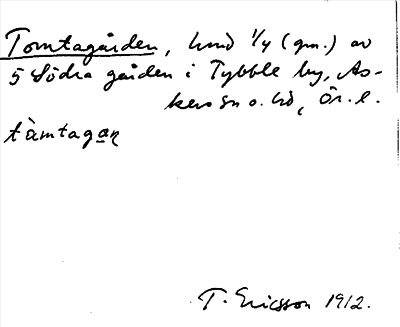 Tomtagården, hmd 1/4 (gm.) av
5 Södra gården i Tybble by, As-
kers sn o. hd, Ör. l.
tàmtagan
T. Ericsson 1912.